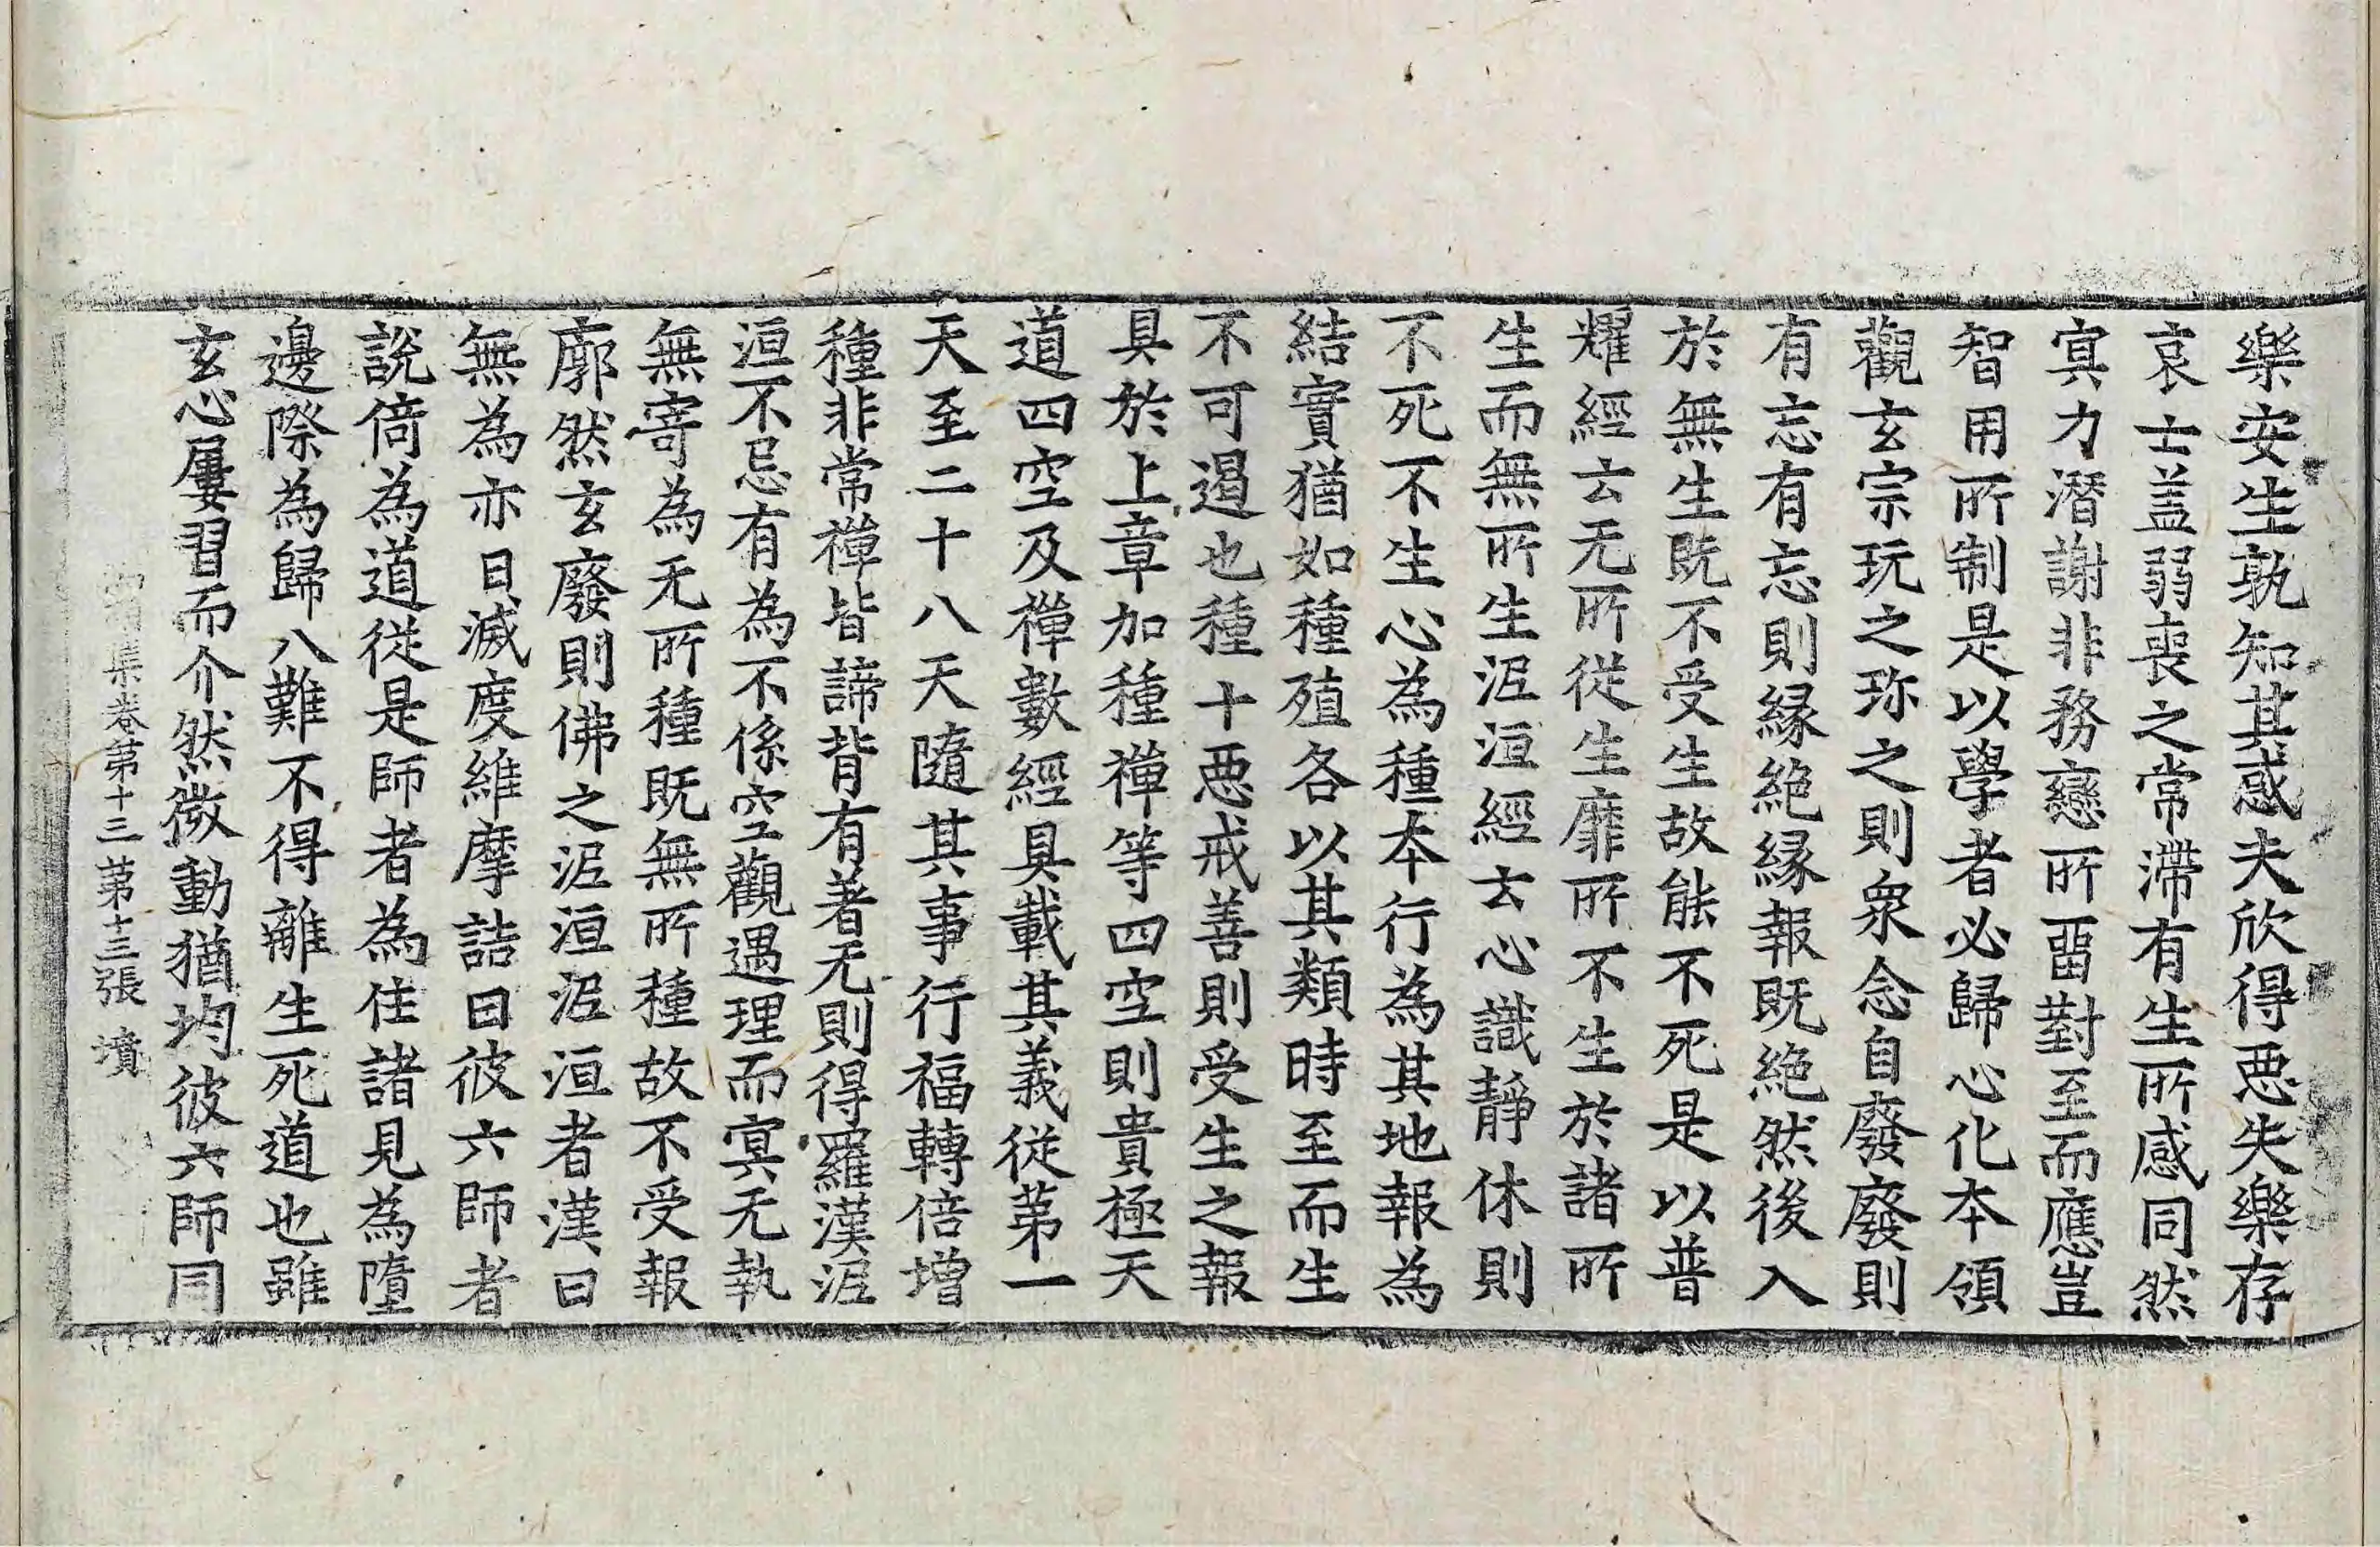 樂安生孰知其惑夫欣得惡失樂存
哀亡蓋弱喪之常滯有生所感同然
冥力潛謝非務戀所留對至而應豈
智用所制是以學者必歸心化本領
觀玄宗玩之珎之則衆念自廢廢則
有忘有忘則緣絶緣報既絶然後入
於無生既不受生故能不死是以普
耀經云无所從生靡所不生於諸所
生而無所生泥洹經云心識靜休則
不死不生心為種本行為其地報為
結實猶如種殖各以其類時至而生
不可遏也種十惡戒善則受生之報
具於上章加種禪等四空則貴極天
道四空及禪數經具載其義從第一
天至二十八天隨其事行福轉倍增
種非常禪皆諦背有著无則得羅漢泥
洹不忌有為不係空觀遇理而冥无執
無寄為无所種既無所種故不受報
廓然玄廢則佛之泥洹泥洹者漢曰
無為亦曰滅度維摩詰曰彼六師者
說倚為道從是師者為住諸見為墮
邊際為歸八難不得離生死道也雖
玄心屢習而介然微動猶均彼六師同
集卷第十三 第十三張 墳